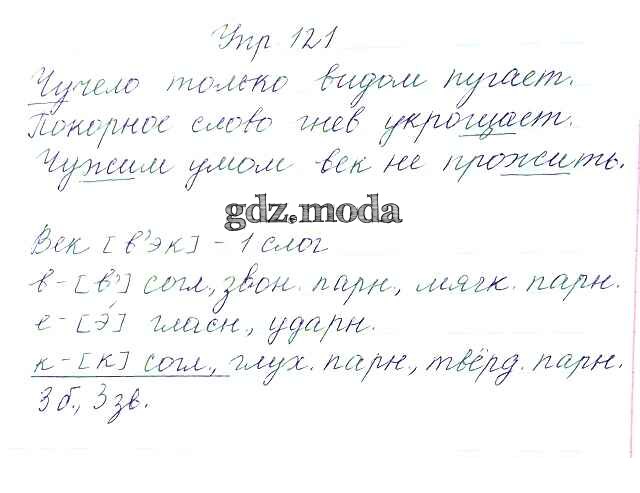 Упр 121
Чучело только видом пугает.
Покорное слово гнев укрощает.
Чужим умом век не прожить.
gdz.moda
Век [в'эк] - 1 слог
в - [в'] согл., звон. парн., мягк. парн.
е - [э́] гласн., ударн.
к - [к] согл., глух. парн., твёрд. парн.
3 б., 3 зв.